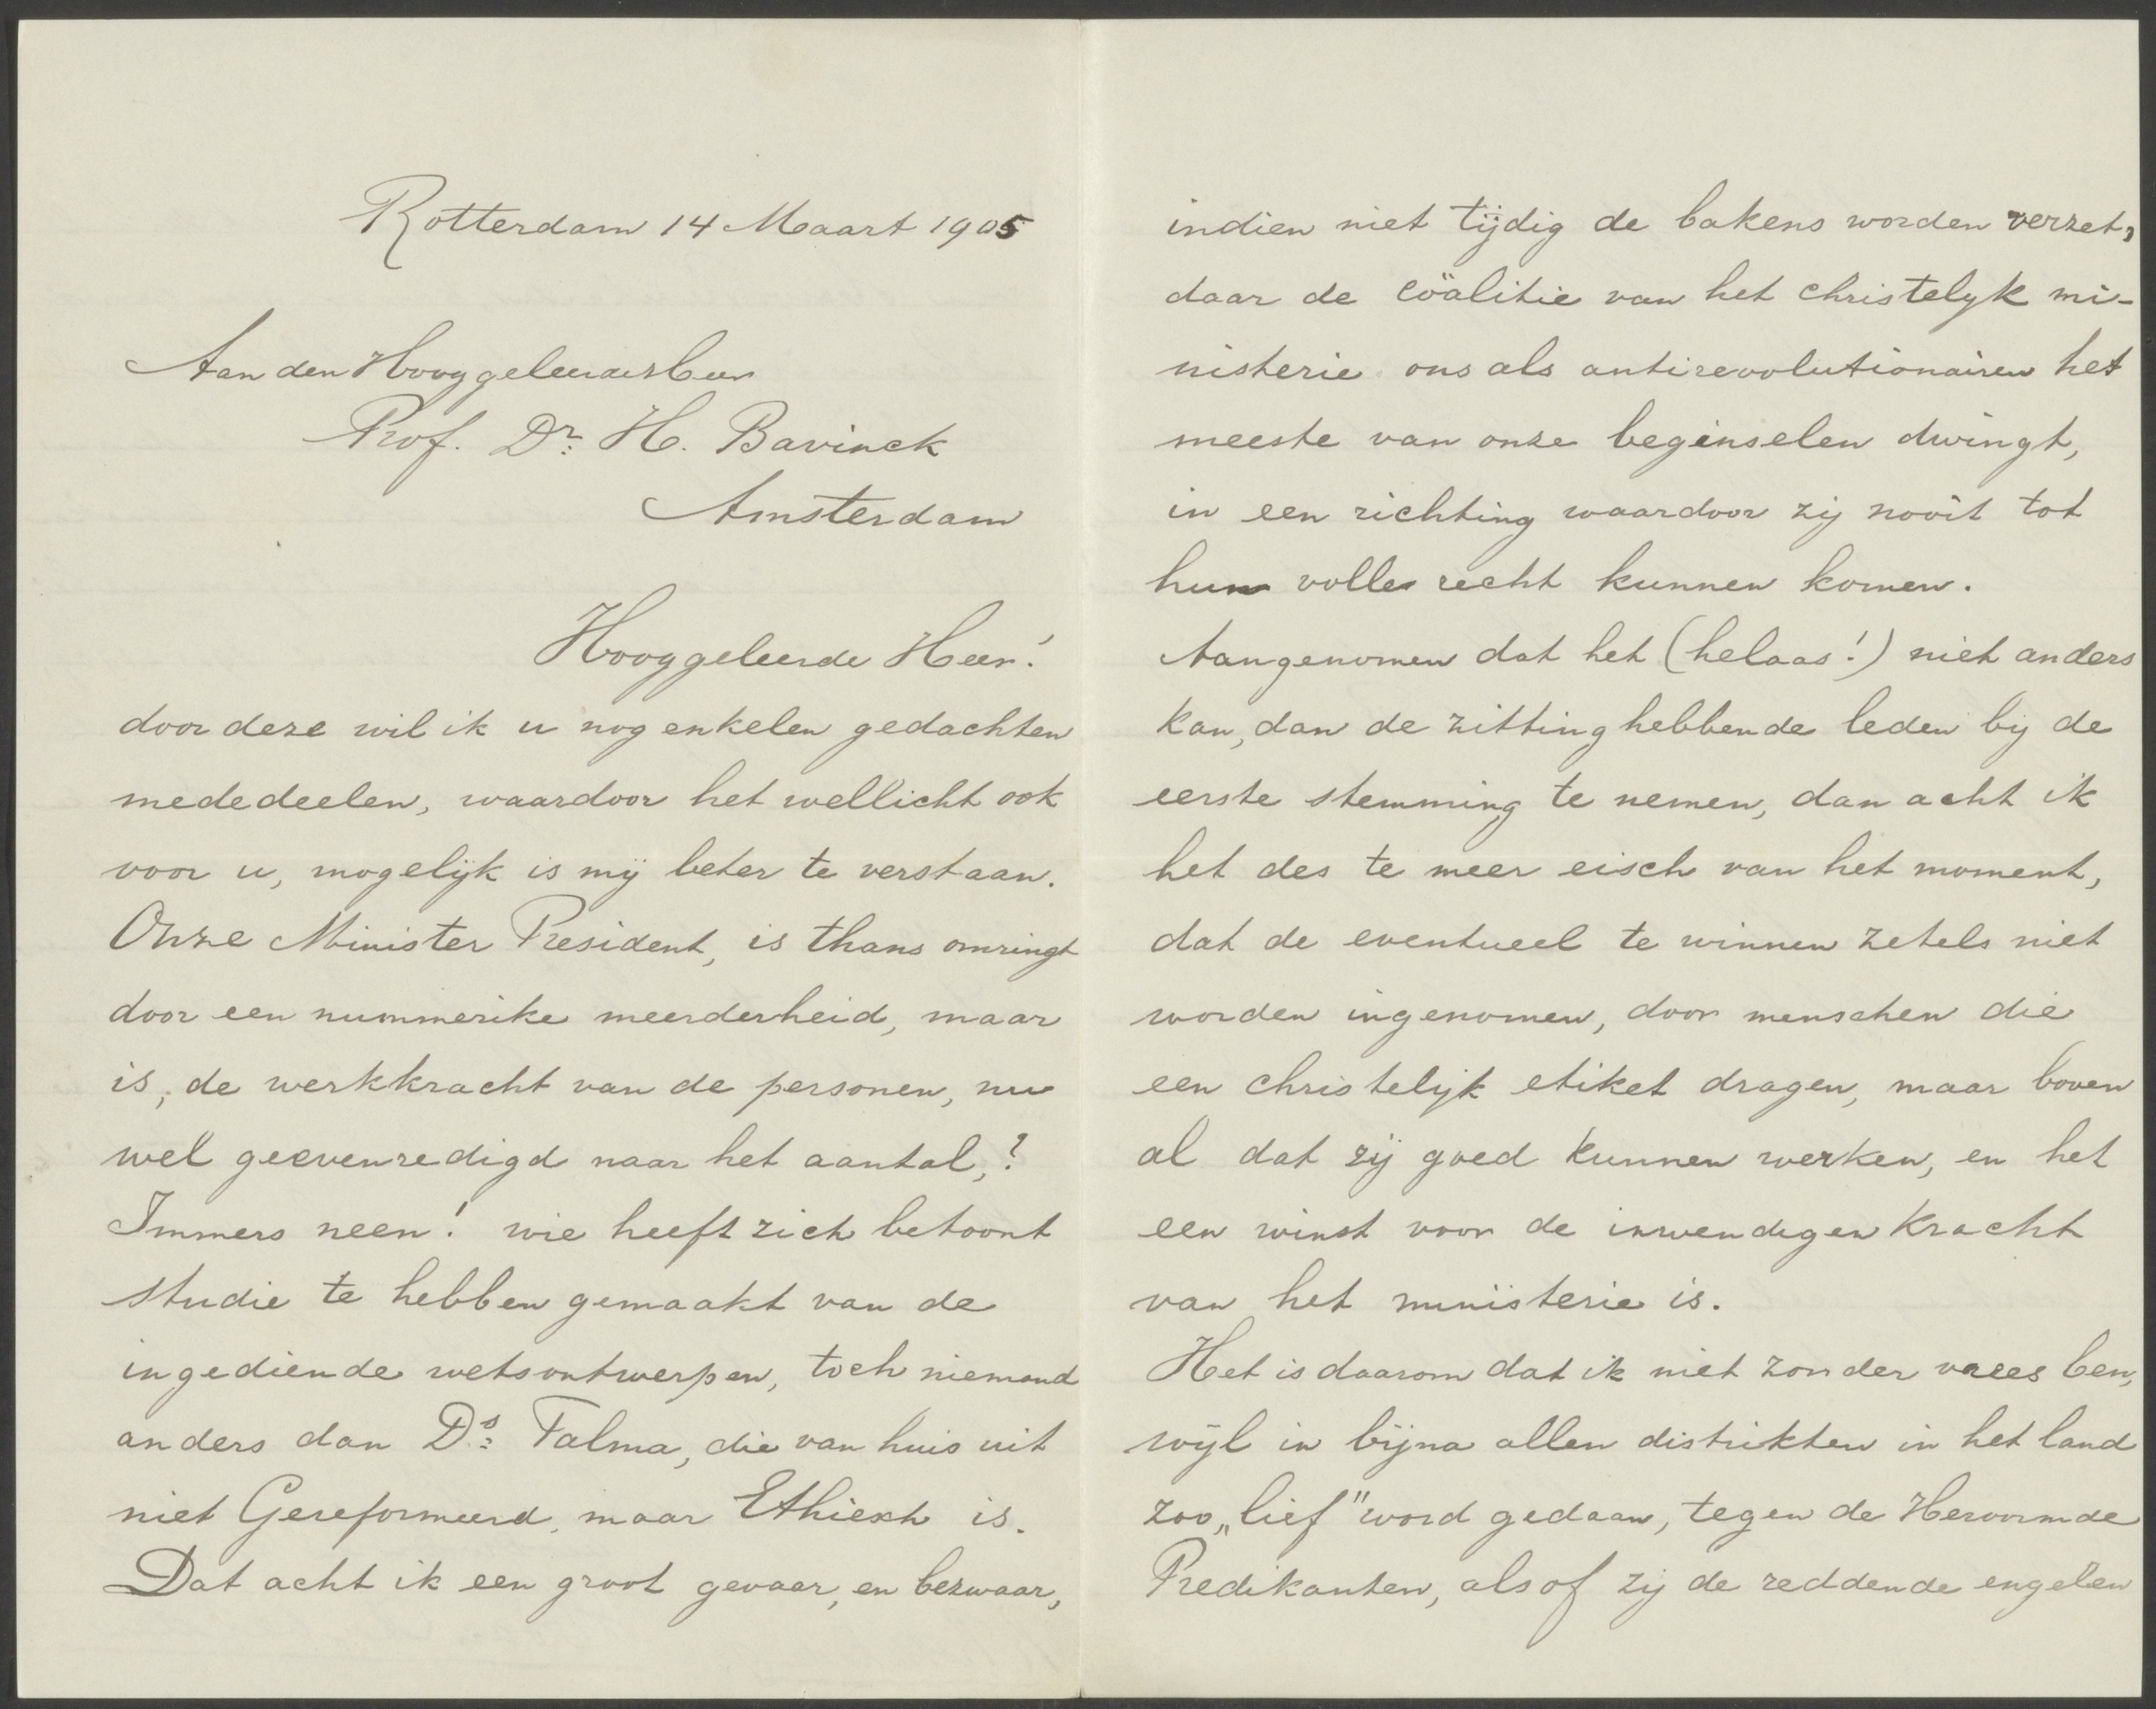 Rotterdam 14 Maart 1905
Aan den Hooggeleerden Heer
Prof. Dr. H. Bavinck
Amsterdam
Hooggeleerde Heer!
door deze wil ik u nog enkelen gedachten
mededeelen, waardoor het wellicht ook
voor u, mogelijk is mij beter te verstaan.
Onze Minister President, is thans omringt
door een nummerike meerderheid, maar
is, de werkkracht van de personen, nu
wel geevenredigd naar het aantal,?
Immers neen! wie heeft zich betoont
studie te hebben gemaakt van de
ingediende wetsontwerpen, toch niemand
anders dan Ds. Talma, die van huis uit
niet Gereformeerd, maar Ethiesch is.
Dat acht ik een groot gevaer, en bezwaar,
indien niet tijdig de bakens worden verzet,
daar de coälitie van het christelyk mi-
nisterie ons als antirevolutionairen het
meeste van onze beginselen dwingt,
in een richting waardoor zij nooit tot
hun volle recht kunnen komen.
Aangenomen dat het (helaas!) niet anders
kan, dan de zitting hebbende leden bij de
eerste stemming te nemen, dan acht ik
het des te meer eisch van het moment,
dat de eventueel te winnen zetels niet
worden ingenomen, door menschen die
een christelijk etiket dragen, maar boven
al dat zij goed kunnen werken, en het
een winst voor de inwendigen kracht
van het ministerie is.
Het is daarom dat ik niet zonder vrees ben,
wijl in bijna allen distrikten in het land
zoo „lief" word gedaan, tegen de Hervormde
Predikanten, alsof zij de reddende engelen